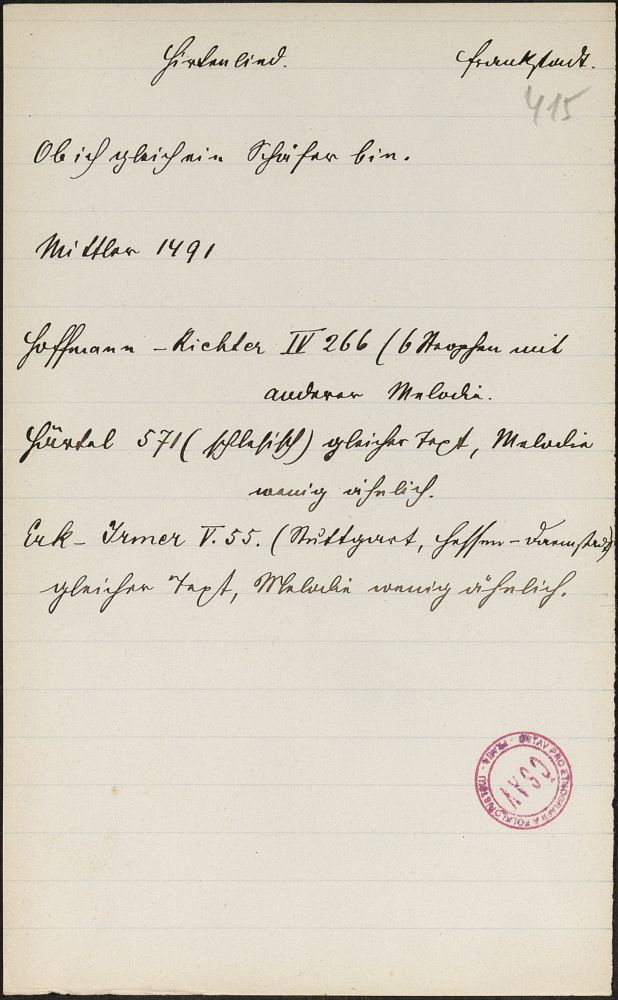 Hirtenlied. Frankstadt.
415
Ob ich gleich ein Schäfer bin.
Mittler 1491
Hoffmann - Richter IV 266 (6 Strophen mit
anderer Melodie.
Härtel 571 (schlesisch) gleicher Text, Melodie
wenig ähnlich.
Erk - Irmer V. 55. (Stuttgart, Hessen - Darmstadt)
gleicher Text, Melodie wenig ähnlich.
ÚSTAV PRO ETNOGRAFII A FOLKLORISTIKU
ČSAV